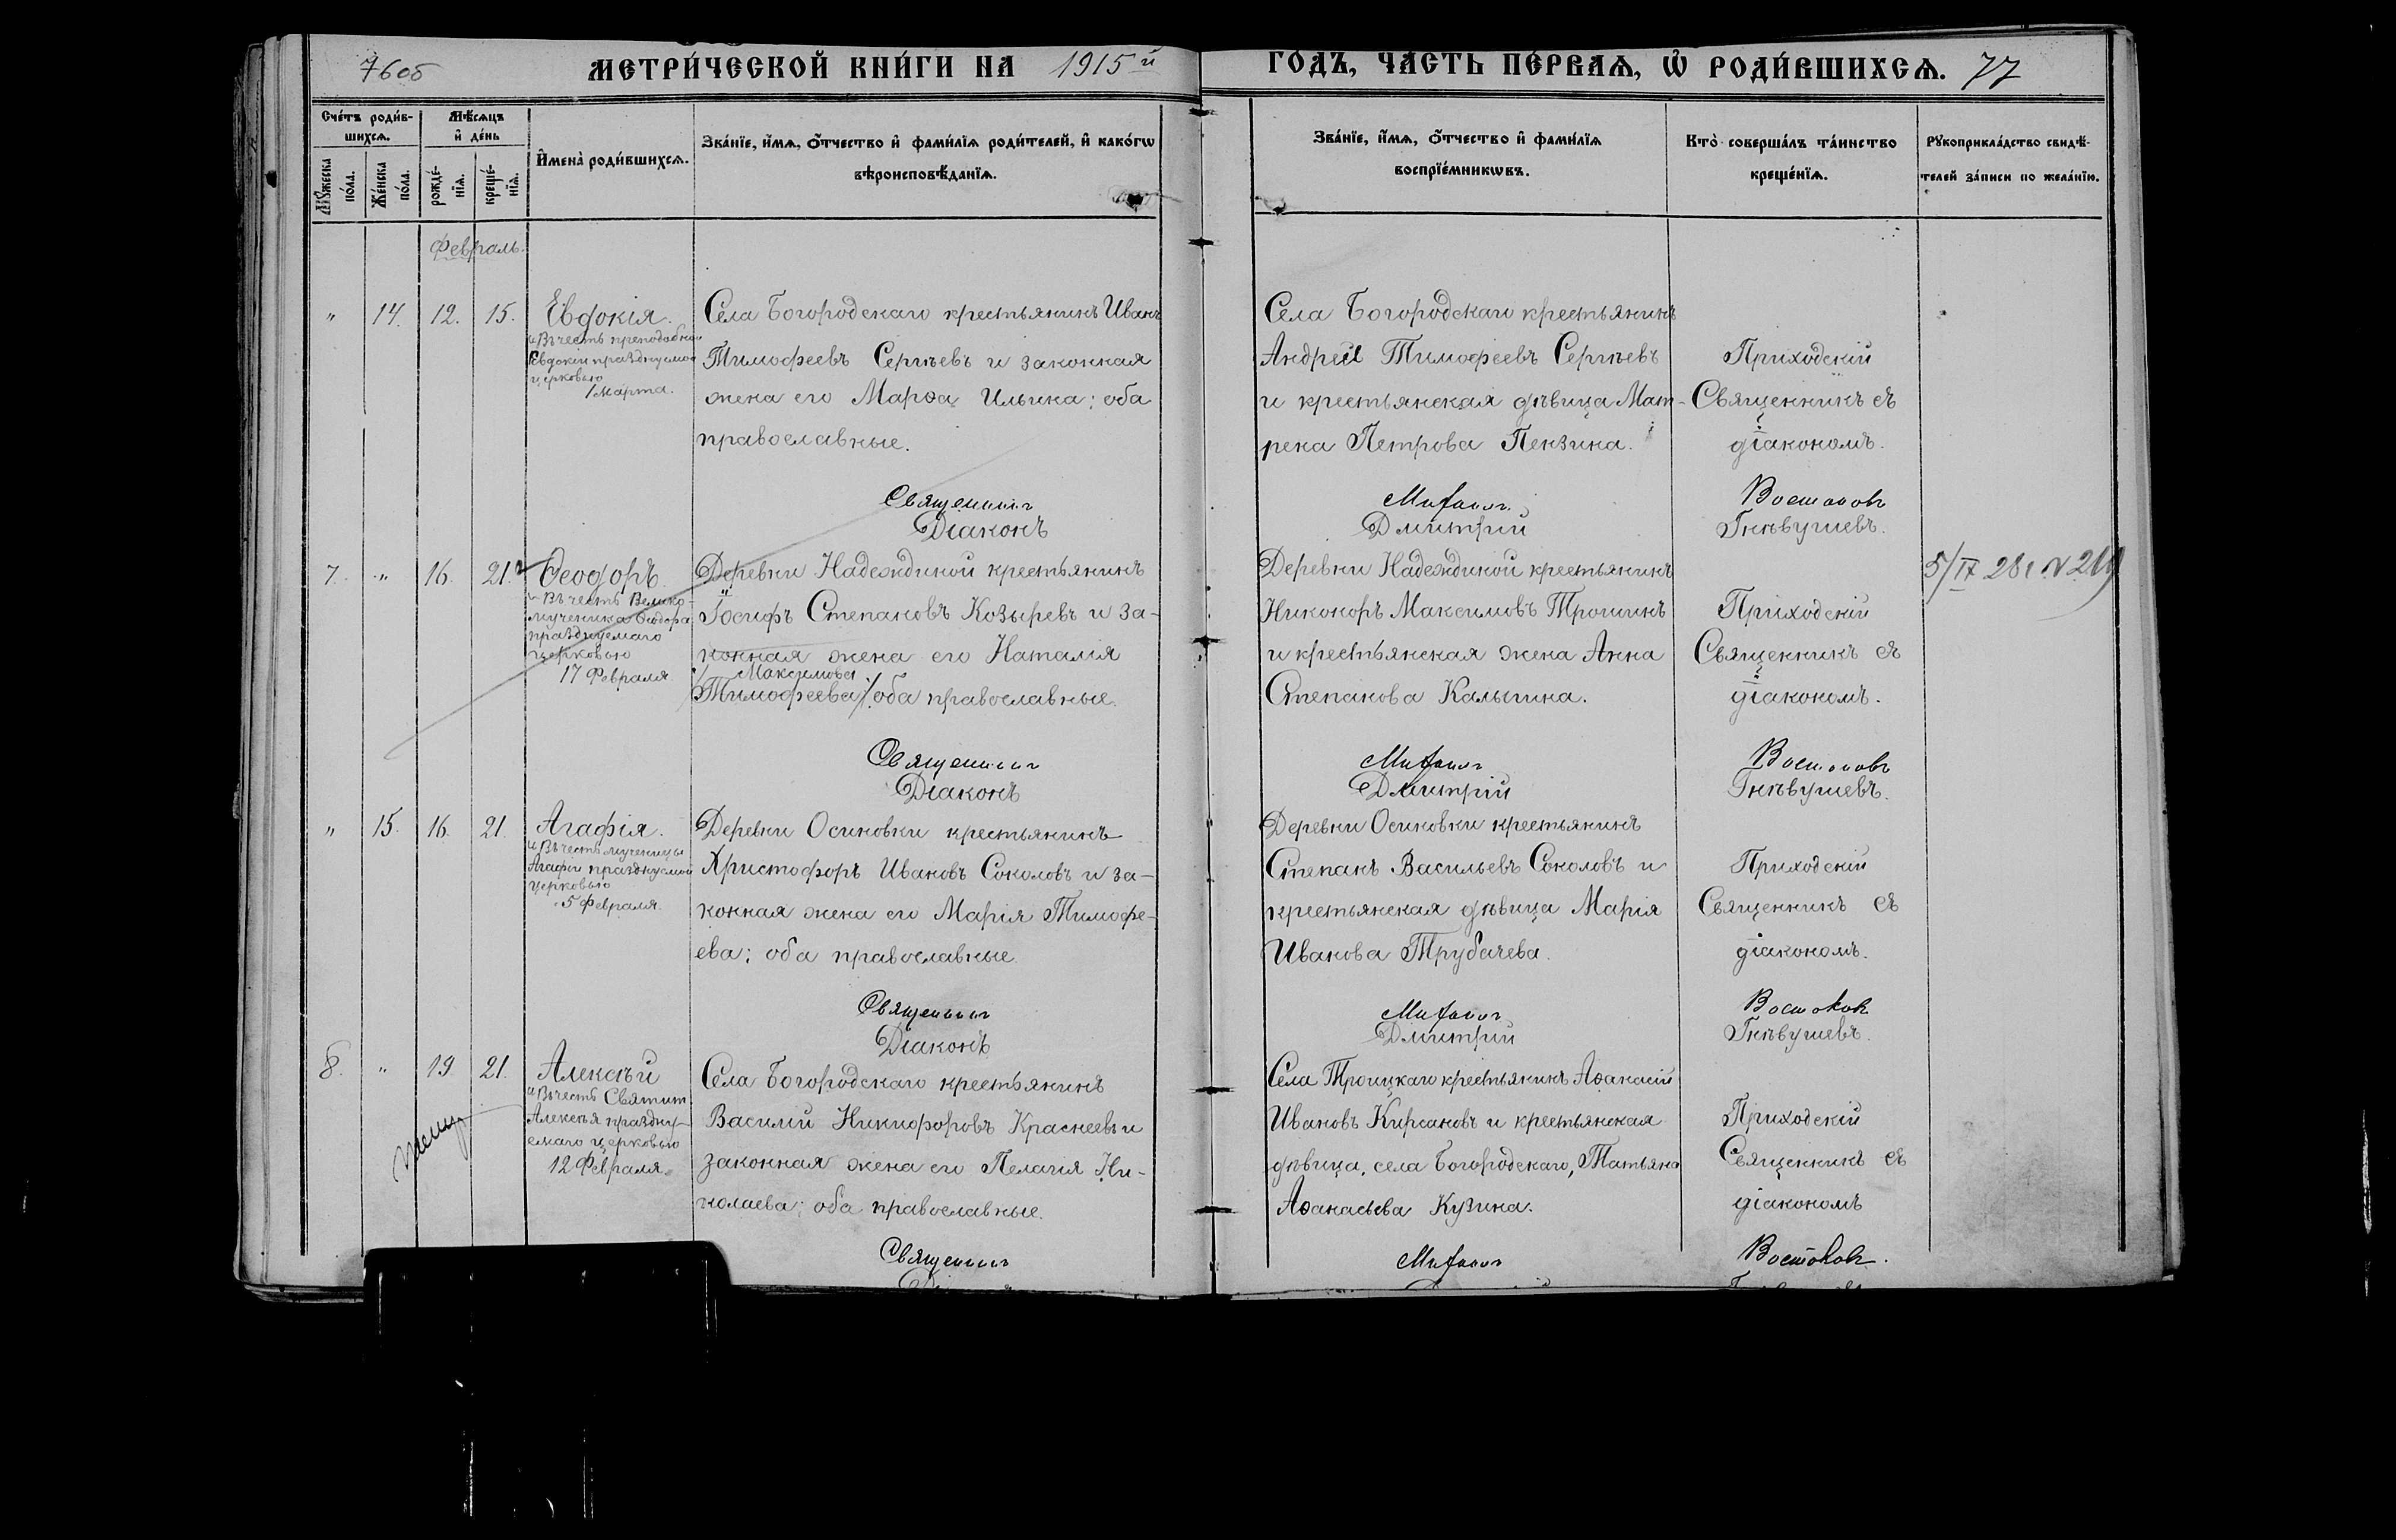 76об
МЕТРИ́ЧЕСКОЙ КНИ́ГИ НА 1915й
ГОДЪ, ЧА́СТЬ ПЕ́РВАѦ, Ѡ҆ РОДИ́ВШИХСѦ. 77
Сче́тъ роди́в-
шихсѧ.
Мѣ́сѧцъ
и҆ де́нь
Мꙋ́жеска
по́ла.
Же́нска
по́ла.
рожде́-
нїѧ.
креще́-
нїѧ.
И҆мена̀ роди́вшихсѧ.
Зва́нїе, и҆́мѧ, ѻ҆́тчество и҆ фами́лїѧ роди́телей, и҆ како́гѡ
вѣроисповѣ́данїѧ.
Зва́нїе, и҆́мѧ, ѻ҆́тчество и҆ фами́лїѧ
воспрїе́мникѡвъ.
Кто̀ соверша́лъ та́инство
креще́нїѧ.
Рꙋкоприкла́дство свидѣ́-
телей за́писи по жела́нїю.
Февраль.
" 14. 12. 15. Евдокія.
Въ честь преподобной
Евдокіи празднуемой
церковью
1 Марта.
Села Богородскаго крестьянинъ Иванъ
Тимофеевъ Сергѣевъ и законная
жена его Марѳа Ильина; оба
православные.
Села Богородскаго крестьянинъ
Андрей Тимофеевъ Сергѣевъ
и крестьянская дѣвица Мат-
рена Петрова Пензина.
Приходскій
Священникъ съ
діакономъ.
Священникъ Митрофанъ Востоковъ
Діаконъ Дмитрій Гнѣвушевъ.
7. " 16. 21. Ѳеодоръ
Въ честь Велико-
мученика Ѳеодора
празднуемаго
церковью
17 Февраля
Деревни Надеждиной крестьянинъ
Іосифъ Степановъ Козыревъ и за-
конная жена его Наталія
Максимова
Тимофеева оба православные.
Деревни Надеждиной крестьянинъ
Никоноръ Максимовъ Трошинъ
и крестьянская жена Анна
Степанова Калыгина.
Приходскій
Священникъ съ
діакономъ.
5/IX 28 г. N
Священникъ Востоковъ
Діаконъ Дмитрій Гнѣвушевъ.
" 15. 16. 21. Агафія.
Въ честь мученицы
Агафіи празднуемой
церковью
5 Февраля.
Деревни Осиновки крестьянинъ
Христофоръ Ивановъ Соколовъ и за-
конная жена его Марія Тимофе-
ева; оба православные.
Деревни Осиновки крестьянинъ
Степанъ Васильевъ Соколовъ и
крестьянская дѣвица Марія
Иванова Трубачева.
Приходскій
Священникъ съ
діакономъ.
Священникъ Востоковъ
Діаконъ Дмитрій Гнѣвушевъ.
8. " 19 21. Алексѣй
Въ честь Святит.
Алексѣя праздну-
емаго церковью
12 Февраля.
Села Богородскаго крестьянинъ
Василій Никифоровъ Краснеевъ и
законная жена его Пелагія Ни-
колаева; оба православные.
Села Троицкаго крестьянинъ Аѳанасій
Ивановъ Кирсановъ и крестьянская
дѣвица, села Богородскаго, Татьяна
Аѳанасьева Кузина.
Приходскій
Священникъ съ
діакономъ
Священникъ Востоковъ.